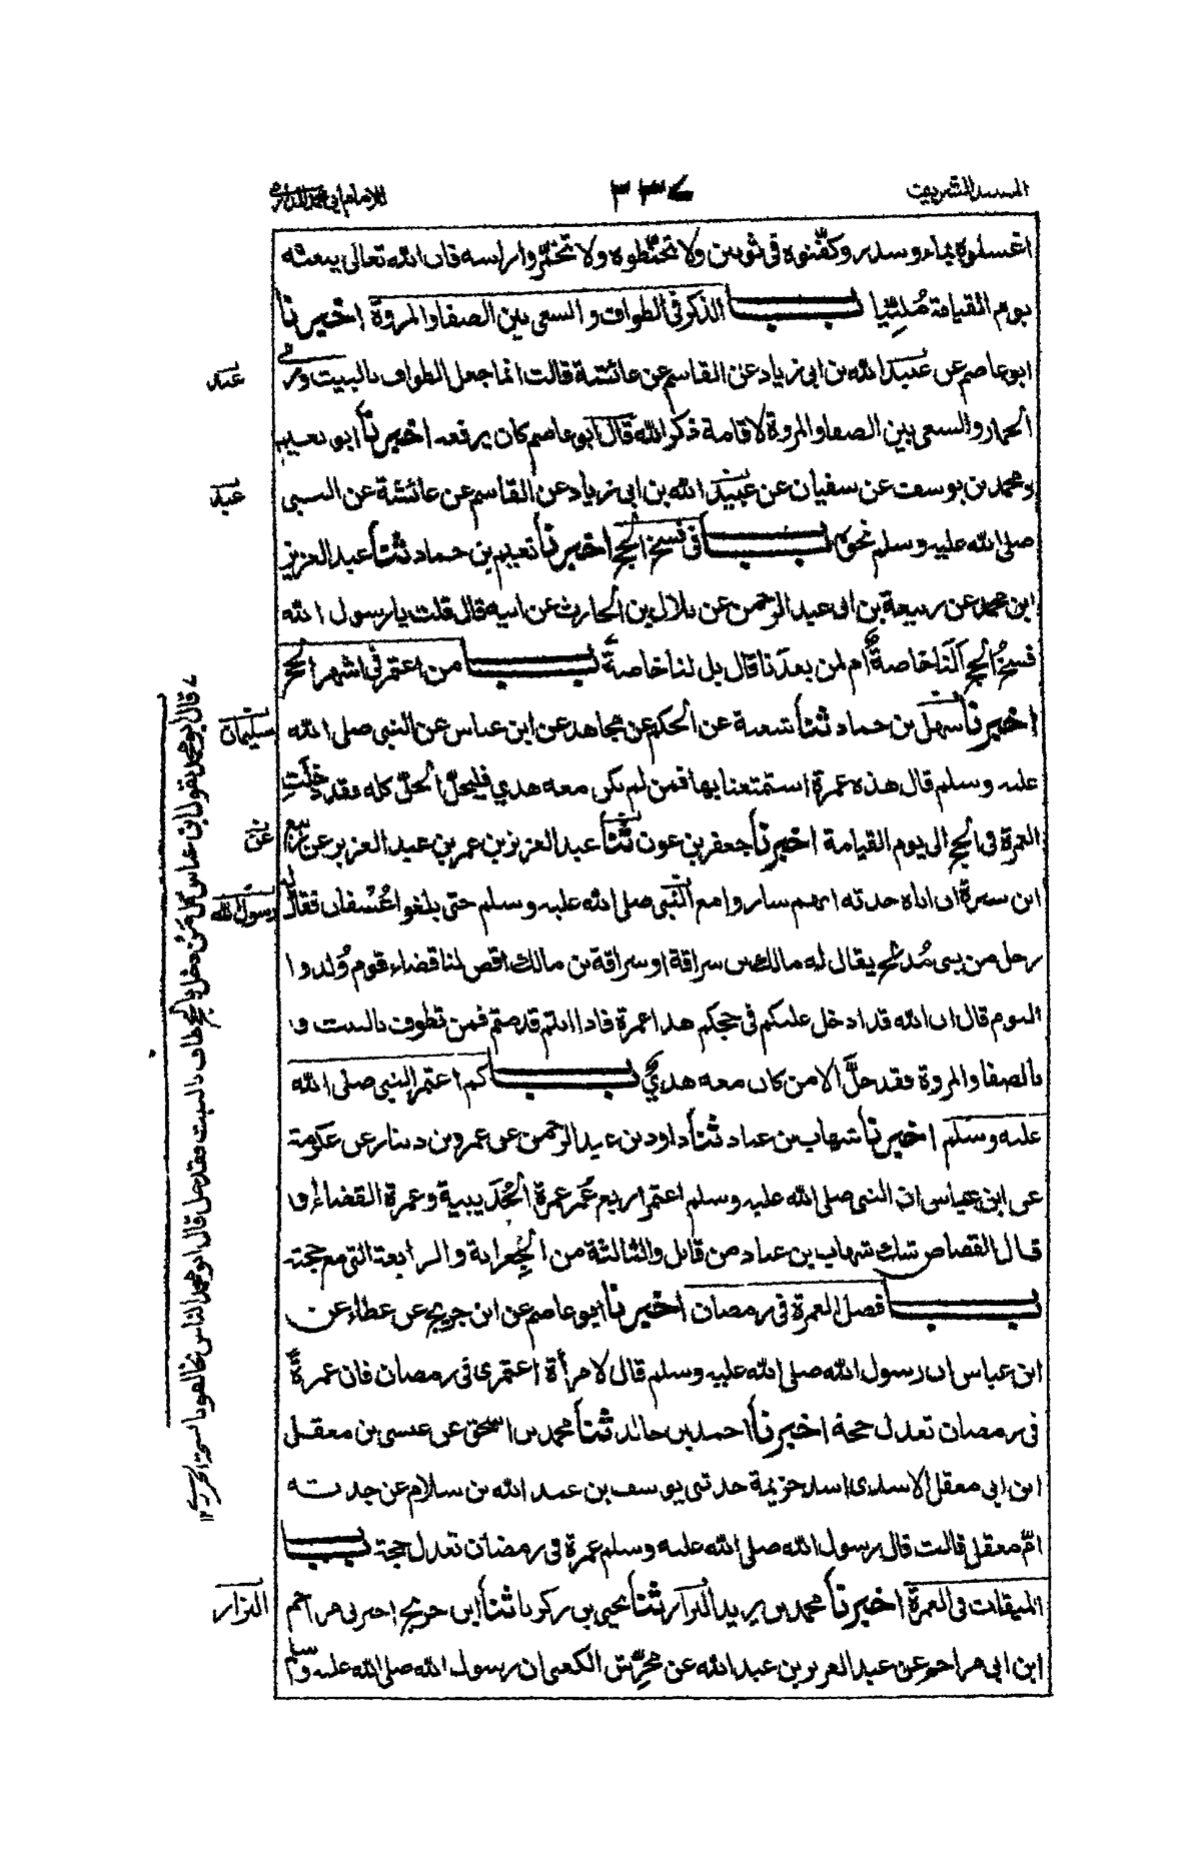 المسند الشريف
٢٣٧
للامام ابي محمد الدارمي
اغسلوه بماء وسدر وكفّنوه في ثوبين ولا تحنّطوه ولا تخمّروا راسه فان الله تعالى يبعثه
يوم القيامة مُلبّيا باب الذكر في الطواف والسعى بين الصفا والمروة اخبرنا
ابو عاصم عن عبيد الله بن ابي زياد عن القاسم عن عائشة قالت انما جعل الطواف بالبيت ورمي
الجمار والسعى بين الصفا والمروة لاقامة ذكر الله قال ابو عاصم كان يرفعه اخبرنا ابو نعيم
ومحمد بن يوسف عن سفيان عن عبيد الله بن ابي زياد عن القاسم عن عائشة عن النبي
صلى الله عليه وسلم نحوه باب في فسخ الحج اخبرنا نعيم بن حماد ثنا عبد العزيز
ابن محمد عن ربيعة بن ابي عبد الرحمن عن بلال بن الحارث عن ابيه قال قلت يا رسول الله
فسخُ الحج اَلَنا خاصةً أم لمن بعدنا قال بل لنا خاصةً باب من اعتمر في اشهر الحج
اخبرنا سهل بن حماد ثنا شعبة عن الحكم عن مجاهد عن ابن عباس عن النبي صلى الله
عليه وسلم قال هذه عمرة استمتعنا بها فمن لم يكن معه هدي فليحلّ الحلّ كله فقد دخلَتِ
العمرة في الحج الى يوم القيامة اخبرنا جعفر بن عون ثنا عبد العزيز بن عمر بن عبد العزيز عن ربيع
ابن سبرة ان اباه حدثه انهم ساروا مع النّبي صلى الله عليه وسلم حتى بلغوا عُسْفان فقال له
رجل من بني مُدلج يقال له مالك بن سراقة او سراقة بن مالك اقض لنا قضاء قوم وُلدوا
اليوم قال ان الله قد ادخل عليكم في حجكم هذا عمرة فاذا انتم قدمتم فمن تطوف بالبيت و
بالصفا والمروة فقد حلَّ الا من كان معه هديٌ باب كم اعتمر النبي صلى الله
عليه وسلم اخبرنا شهاب بن عباد ثنا داود بن عبد الرحمن عن عمرو بن دينار عن عكرمة
عن ابن عباس ان النبي صلى الله عليه وسلم اعتمر اربع عُمَر عمرة الحُدَيبية وعمرة القضاء او
قال القصاص شك شهاب بن عباد من قابل والثالثة من الجِعرانة والرابعة التي مع حجته
باب فضل العمرة في رمضان اخبرنا ابو عاصم عن ابن جريج عن عطاء عن
ابن عباس ان رسول الله صلى الله عليه وسلم قال لامرأة اعتمري في رمضان فان عمرةً
في رمضان تعدل حجة اخبرنا احمد بن خالد ثنا محمد بن اسحق عن عيسى بن معقل
ابن ابي معقل الاسدي اسد خزيمة حدثني يوسف بن عبد الله بن سلام عن جدته
امّ معقل قالت قال رسول الله صلى الله عليه وسلم عمرة في رمضان تعدل حجة باب
الميقات في العمرة اخبرنا محمد بن يزيد البزاز ثنا يحيى بن زكريا ثنا ابن جريج اخبرني مزاحم
ابن ابي مزاحم عن عبد العزيز بن عبد الله عن محرِّش الكعبي ان رسول الله صلى الله عليه وسلم
عبد
عبد
سليمان
عن
رسول الله
البزار
قال ابو محمد يقول ابن عباس كل مَنْ دخل بالحج طاف بالبيت فقد حل قال ابو محمد الناس